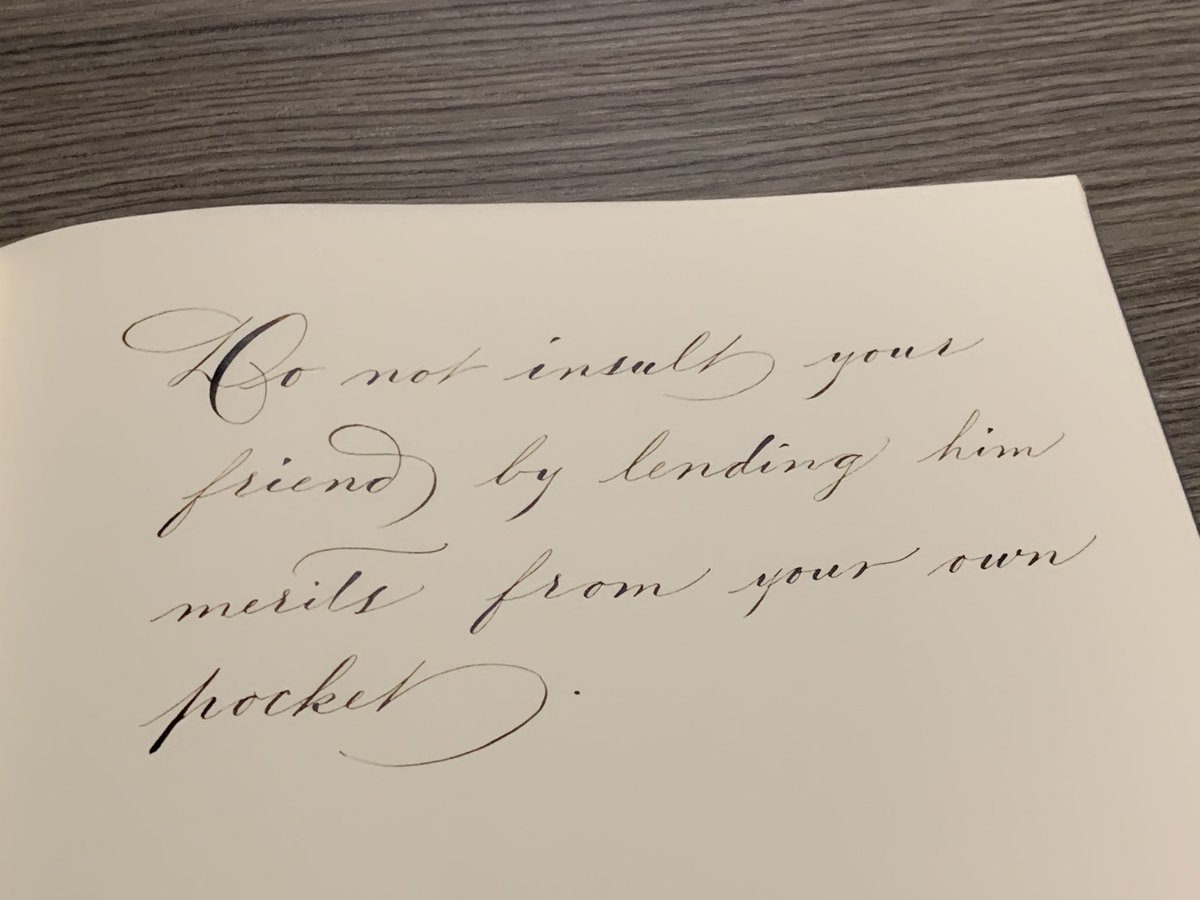 Do not insult your
friend by lending him
merits from your own
pocket.